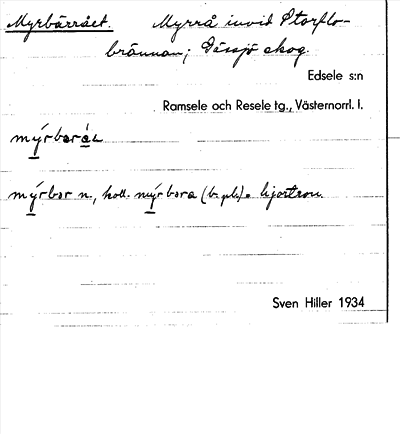 Myrbärrået. Myrrå invid Storflo-
brännan; Gåssjö skog.
Edsele s:n
Ramsele och Resele tg., Västernorrl. l.
mýrbarål
mýrbär n., koll. mýrbara (b. pl.) = hjortron.
Sven Hiller 1934